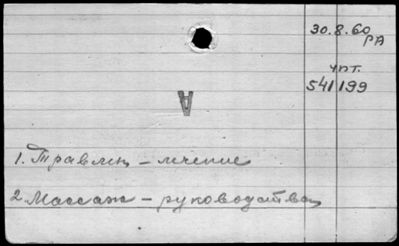 30.8.60
РА
чпт.
541199
А
1. Травлен – лечение
2. Массаж – руководства